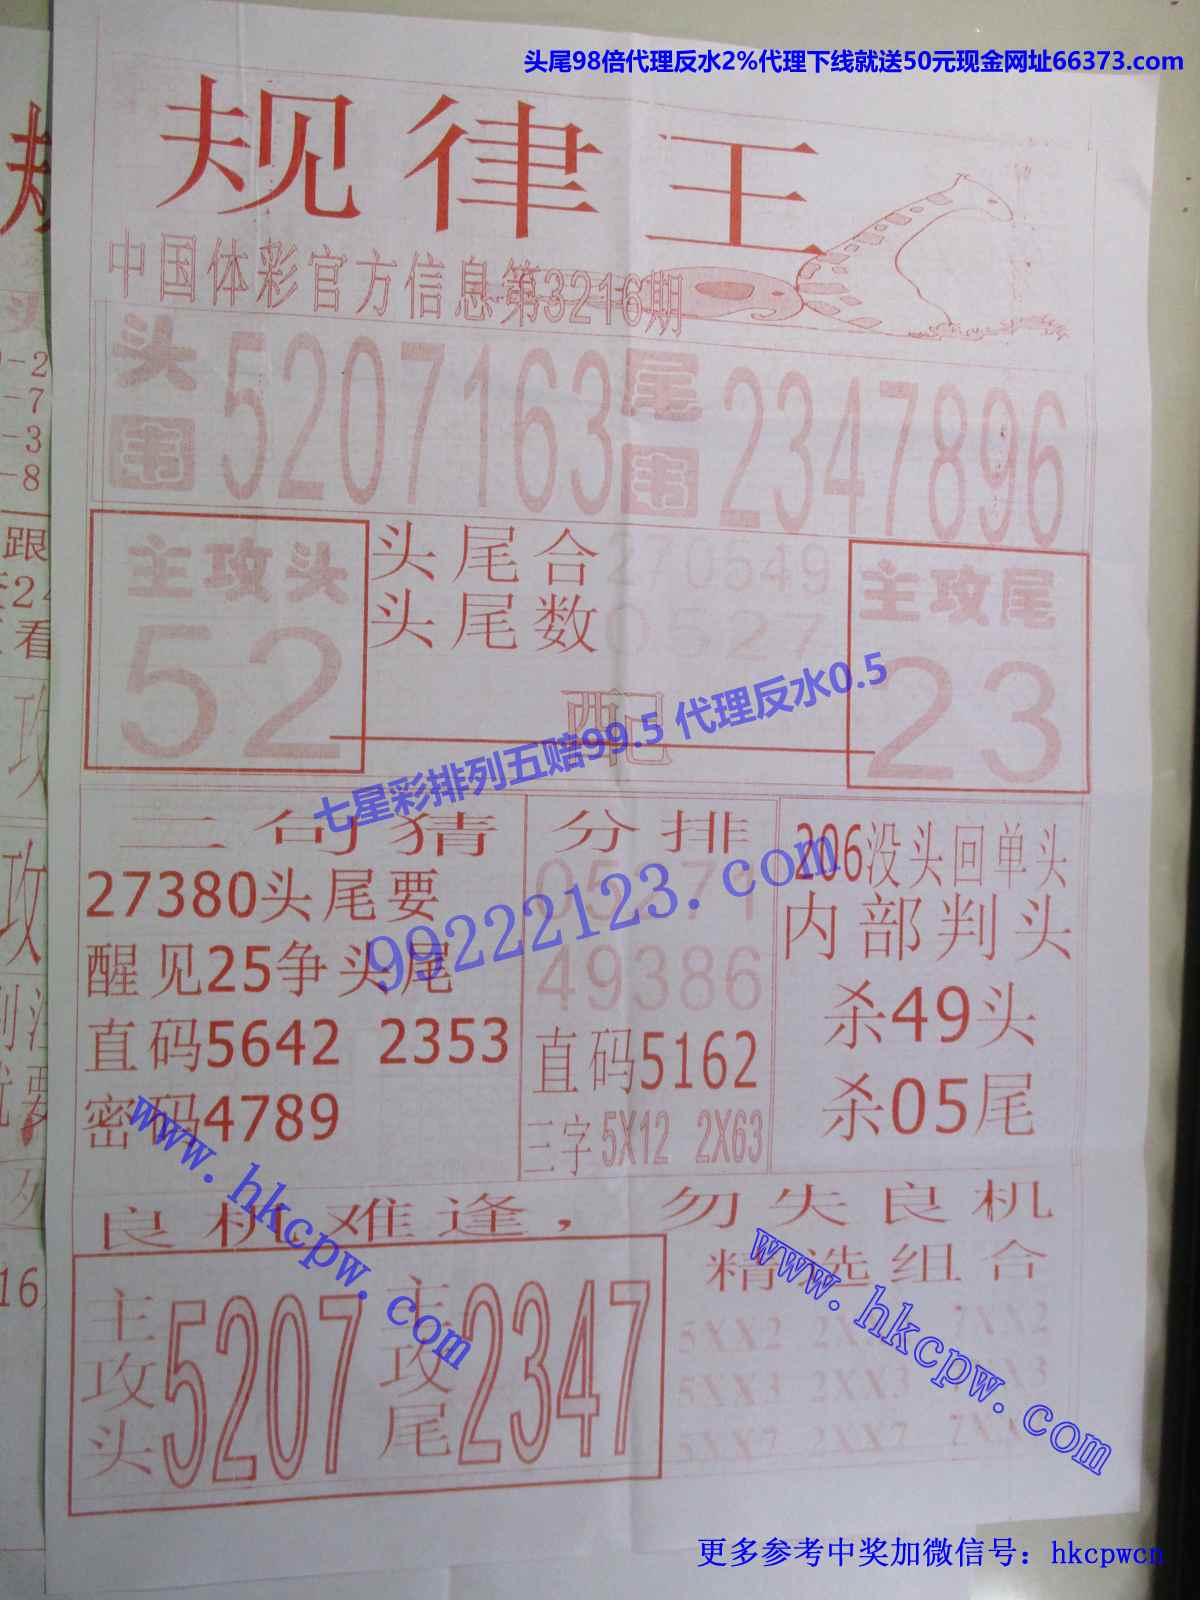 头尾98倍代理反水2%代理下线就送50元现金网址66373.com
规律王
中国体彩官方信息第3216期
头围5207163 尾围2347896
主攻头
52
头尾合270549
头尾数0527
配
主攻尾
23
七星彩排列五赔99.5 代理反水0.5
99222123.com
二句猜
27380头尾要
醒见25争头尾
直码5642 2353
密码4789
分排
05271
49386
直码5162
三字5X12 2X63
206没头回单头
内部判头
杀49头
杀05尾
www.hkcpw.com
良机难逢，勿失良机
主攻头5207 主攻尾2347
精选组合
5XX2 7XX2
5XX3 2XX3
5XX7 2XX7
www.hkcpw.com
更多参考中奖加微信号：hkcpwcn
-2
-7
-3
-8
跟
看
攻
攻
16